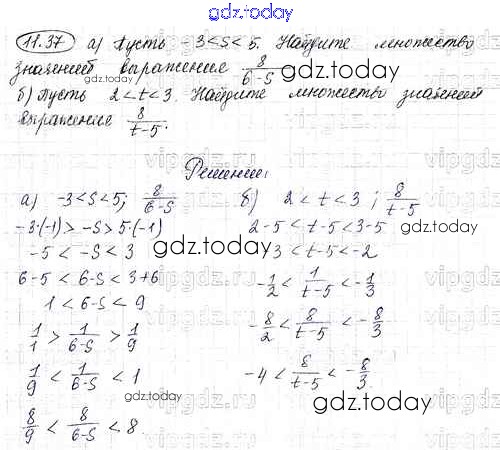 gdz.today
11.37 а) Пусть -3<S<5. Найдите множество
значений выражения 8/(6-S)
б) Пусть 2<t<3. Найдите множество значений
выражения 8/(t-5).
Решение:
а) -3<S<5; 8/(6-S)
-3·(-1)>-S>5·(-1)
-5<-S<3
6-5<6-S<3+6
1<6-S<9
1/1>1/(6-S)>1/9
1/9<1/(6-S)<1
8/9<8/(6-S)<8.
б) 2<t<3; 8/(t-5)
2-5<t-5<3-5
3<t-5<-2
-1/2<1/(t-5)<-1/3
-8/2<8/(t-5)<-8/3
-4<8/(t-5)<-8/3.
gdz.today
gdz.today
gdz.today
gdz.today
gdz.today
gdz.today